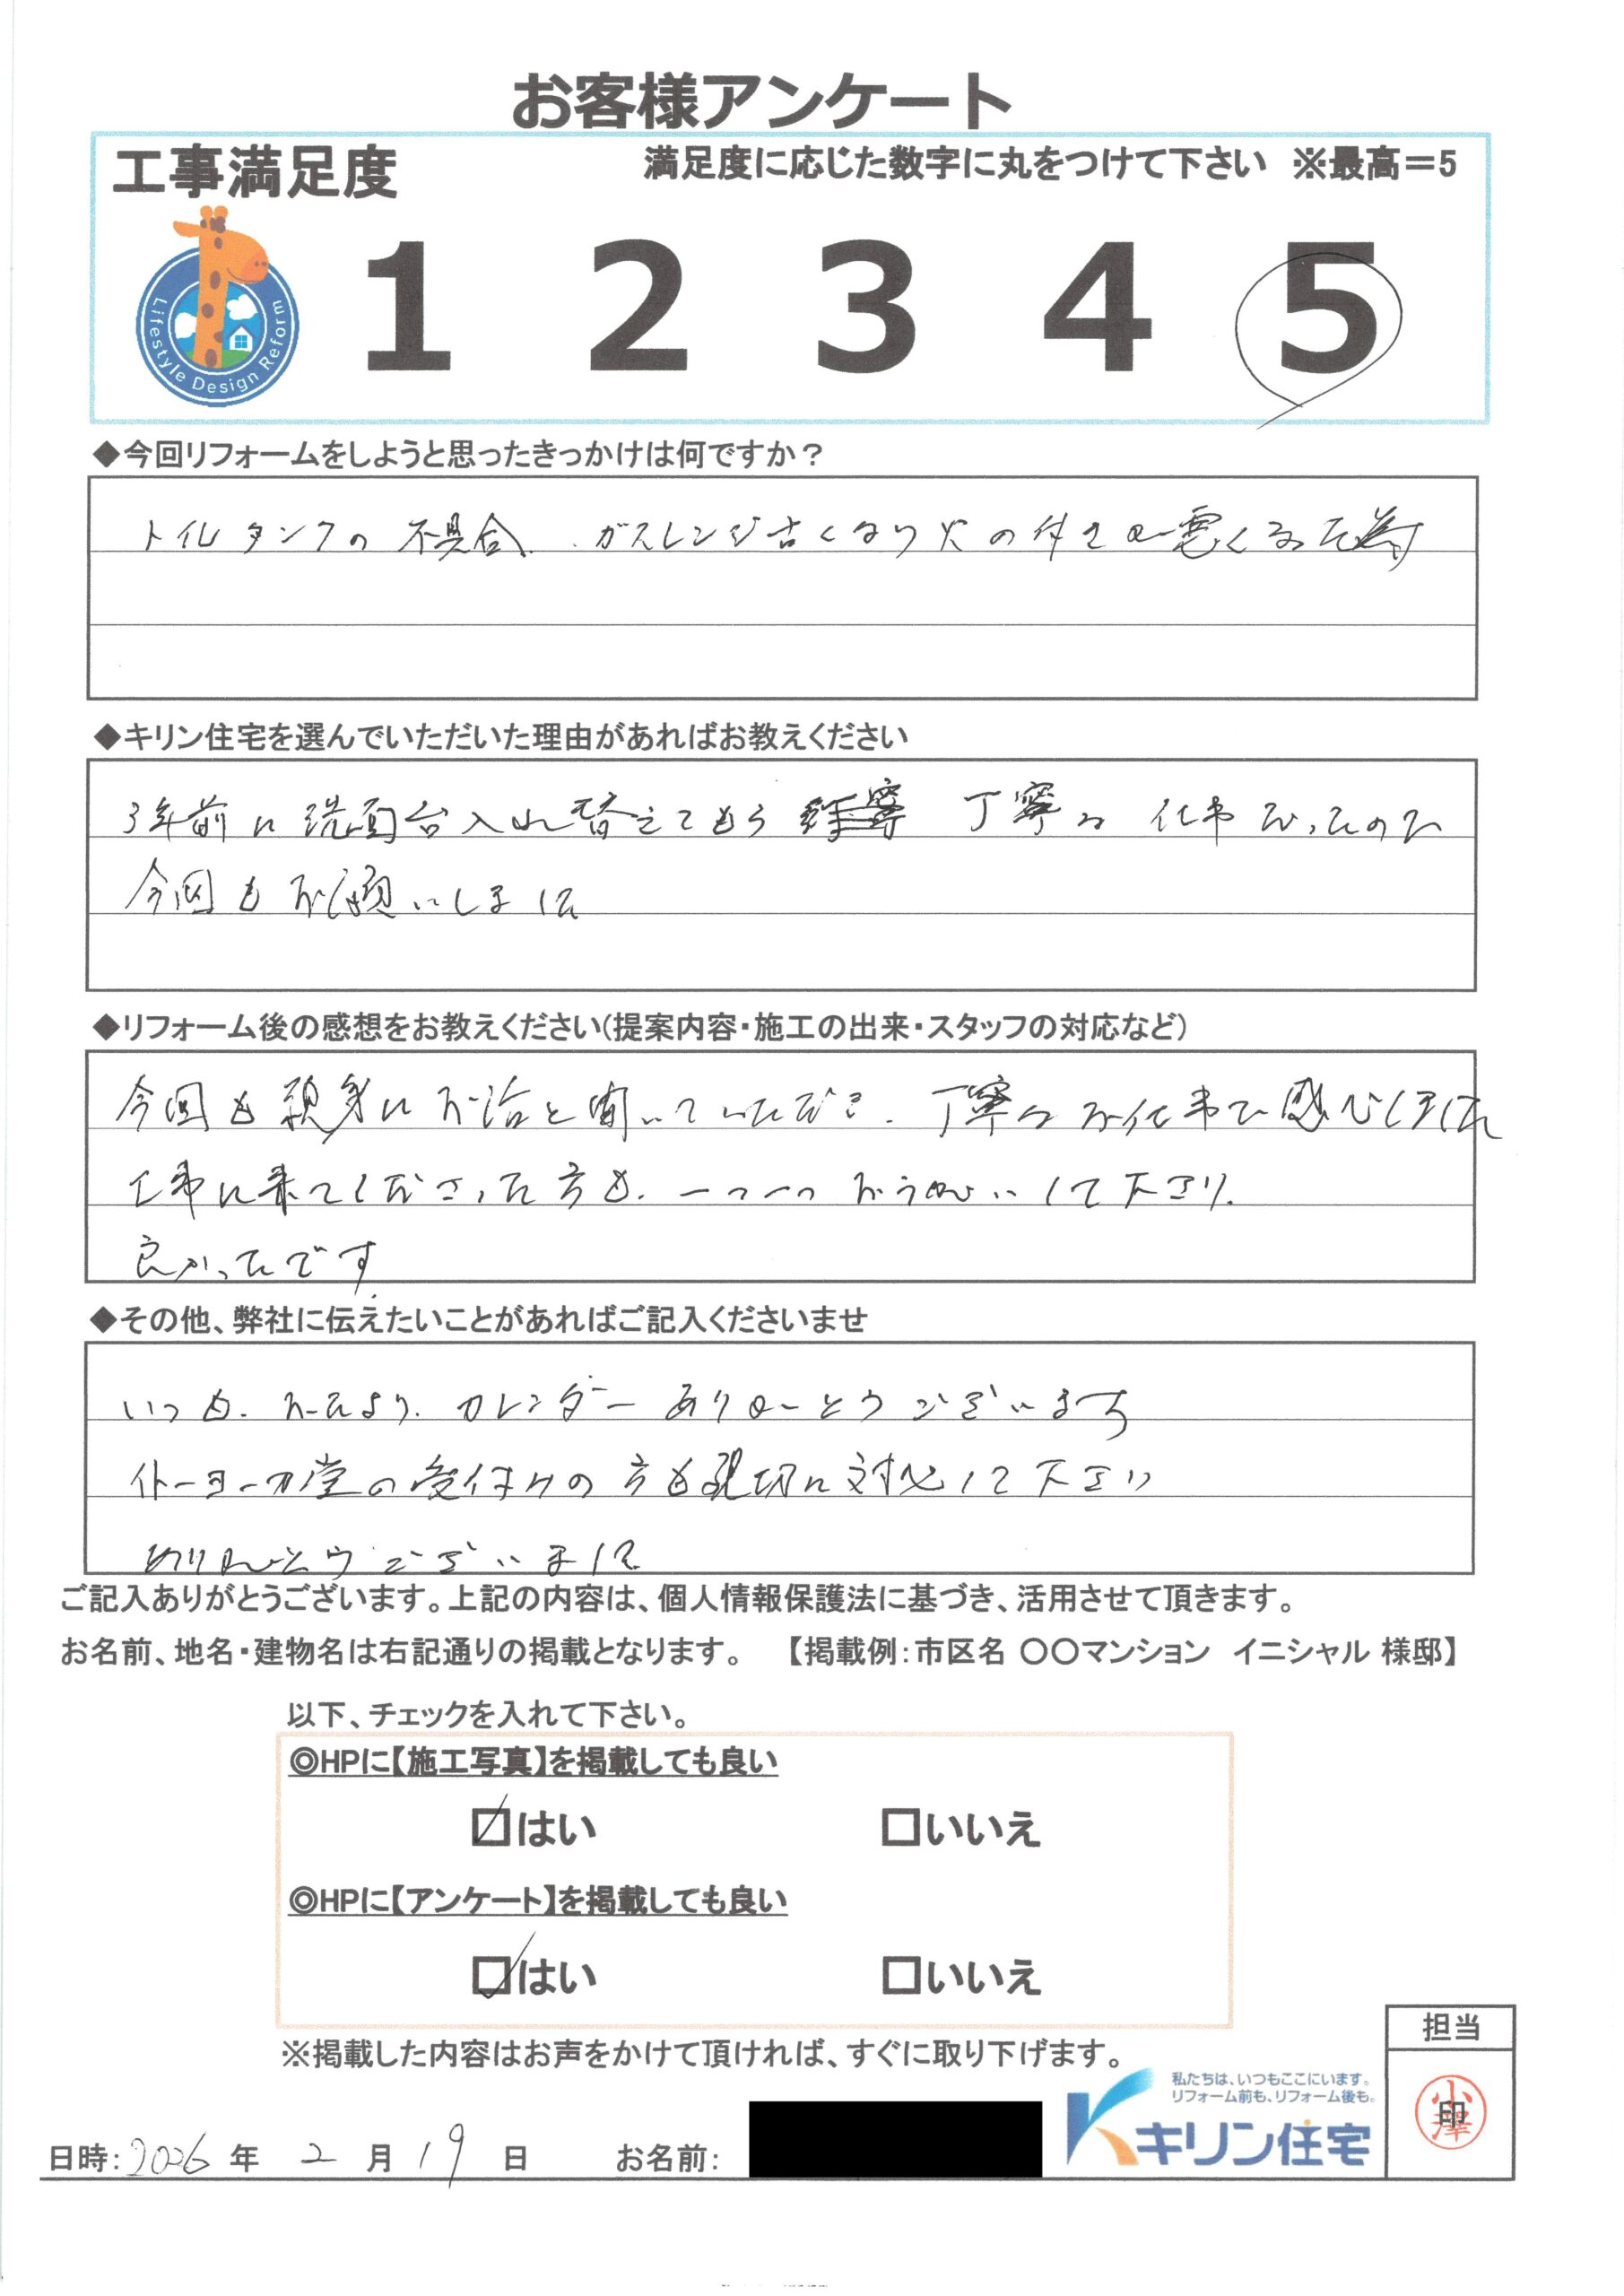 お客様アンケート
工事満足度
満足度に応じた数字に丸をつけて下さい ※最高=5
Lifestyle Design Reform
1 2 3 4 5
◆今回リフォームをしようと思ったきっかけは何ですか?
トイレタンクの不具合、ガスレンジ古くなり火の付きが悪くなった為
◆キリン住宅を選んでいただいた理由があればお教えください
3年前に洗面台入れ替えてもらう 丁寧な仕事だったので
今回もお願いしました
◆リフォーム後の感想をお教えください(提案内容・施工の出来・スタッフの対応など)
今回も親身にお話を聞いていただき、丁寧なお仕事で感心しました
工事に来てくださった方も、一つ一つ して下さり、
良かったです。
◆その他、弊社に伝えたいことがあればご記入くださいませ
いつも、おたより、カレンダーありがとうございます
イトーヨーカ堂の受付けの方も親切に対応して下さり
ありがとうございました
ご記入ありがとうございます。上記の内容は、個人情報保護法に基づき、活用させて頂きます。
お名前、地名・建物名は右記通りの掲載となります。 【掲載例:市区名 〇〇マンション イニシャル 様邸】
以下、チェックを入れて下さい。
◎HPに【施工写真】を掲載しても良い
☑はい □いいえ
◎HPに【アンケート】を掲載しても良い
☑はい □いいえ
※掲載した内容はお声をかけて頂ければ、すぐに取り下げます。
担当
私たちは、いつもここにいます。
リフォーム前も、リフォーム後も。
キリン住宅
小澤
印
日時: 2026 年 2 月 19 日 お名前: